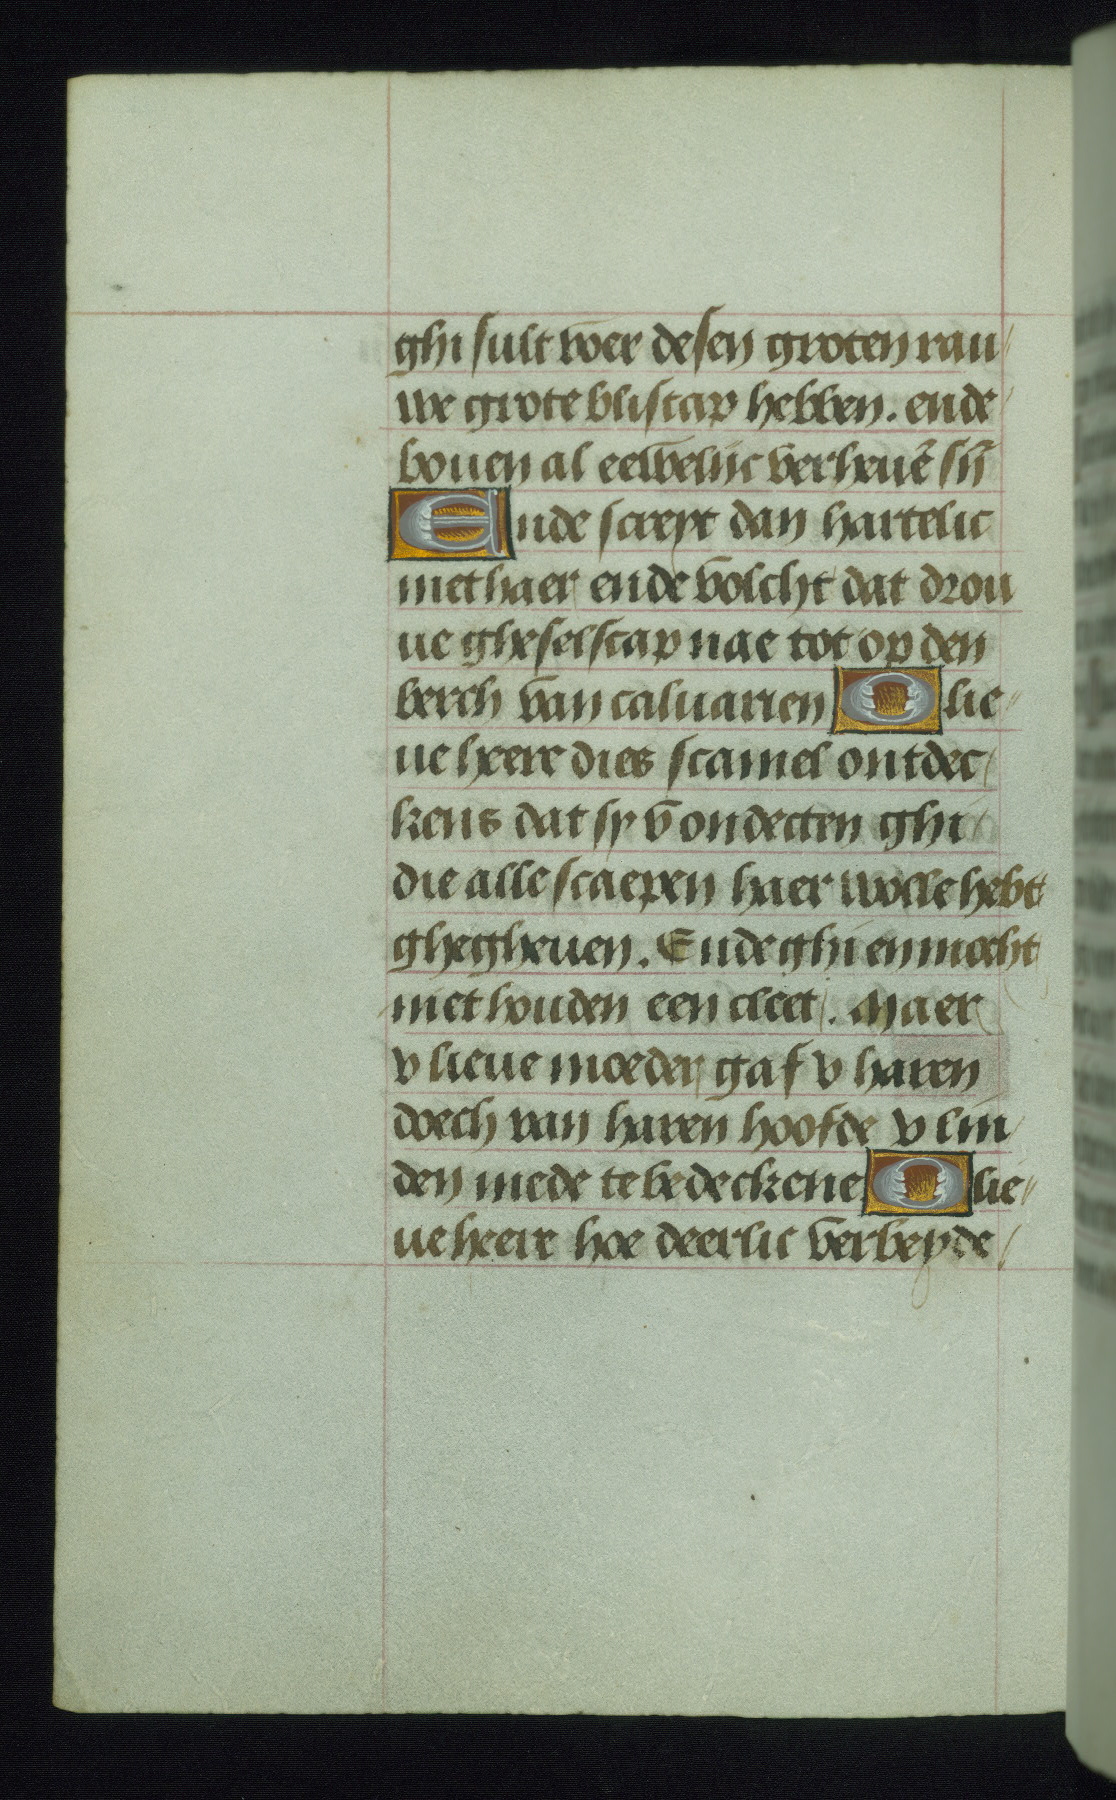 ghi sult voer desen groten rau/
we grote bliscap hebben. ende
bouen al eewelijc verheuē sij̄
Ende screyt dan hartelic
met haer ende volcht dat drou
ue gheselscap nae tot op den
berch van caluarien O lie〃
ue heere dies scamel ontdec/
kens dat sy v ondecten ghi
die alle scaepen haer wolle hebt
ghegheuen. Ende ghi en mocht
niet houden een cleet. Maer
v lieue moeder gaf v haren
doech van haren hoofde v lin
den mede te bedeckene O lie〃
ue heere hoe deerlic verbeyde/